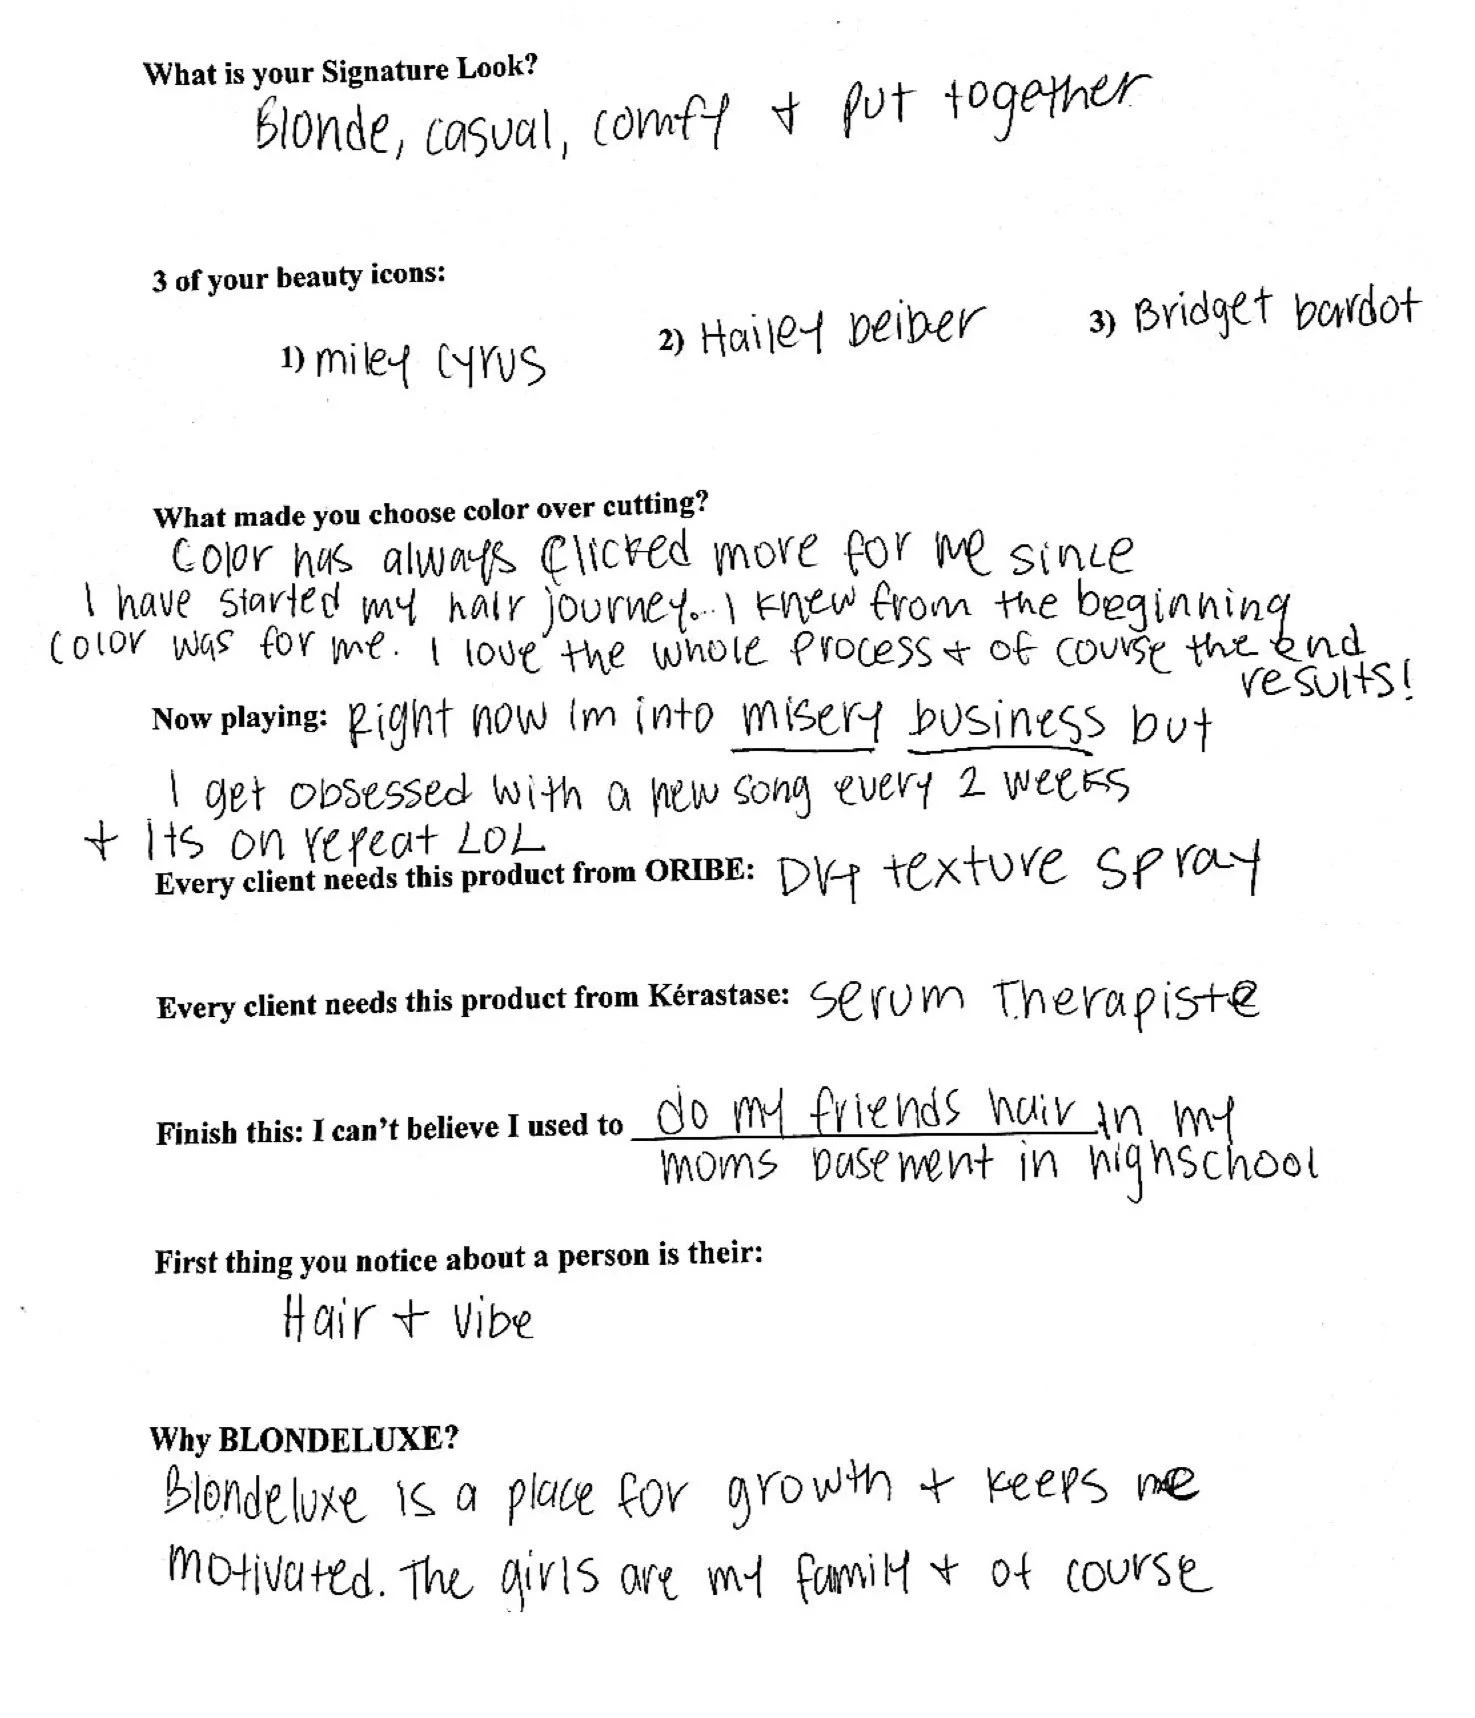 What is your Signature Look?
Blonde, casual, comfy + put together
3 of your beauty icons:
1) miley cyrus 2) Hailey beiber 3) Bridget bardot
What made you choose color over cutting?
Color has always clicked more for me since
I have started my hair journey... I knew from the beginning
color was for me. I love the whole process + of course the end
results!
Now playing: Right now im into misery business but
I get obsessed with a new song every 2 weeks
+ its on repeat LOL
Every client needs this product from ORIBE: Dry texture spray
Every client needs this product from Kérastase: Serum Therapiste
Finish this: I can't believe I used to do my friends hair in my
moms basement in highschool
First thing you notice about a person is their:
Hair + vibe
Why BLONDELUXE?
Blondeluxe is a place for growth + keeps me
motivated. The girls are my family + of course